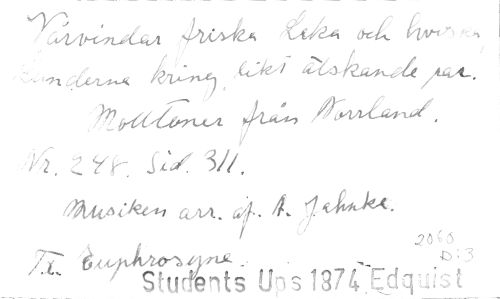 Vårvindar friska Leka och hviska
Lunderna kring, likt älskande par.
Molltoner från Norrland.
Nr. 248. Sid. 311.
Musiken arr. af. A. Jahnke.
Tx. Euphrosyne.
2060
D:3
Students Ups 1874, Edquist